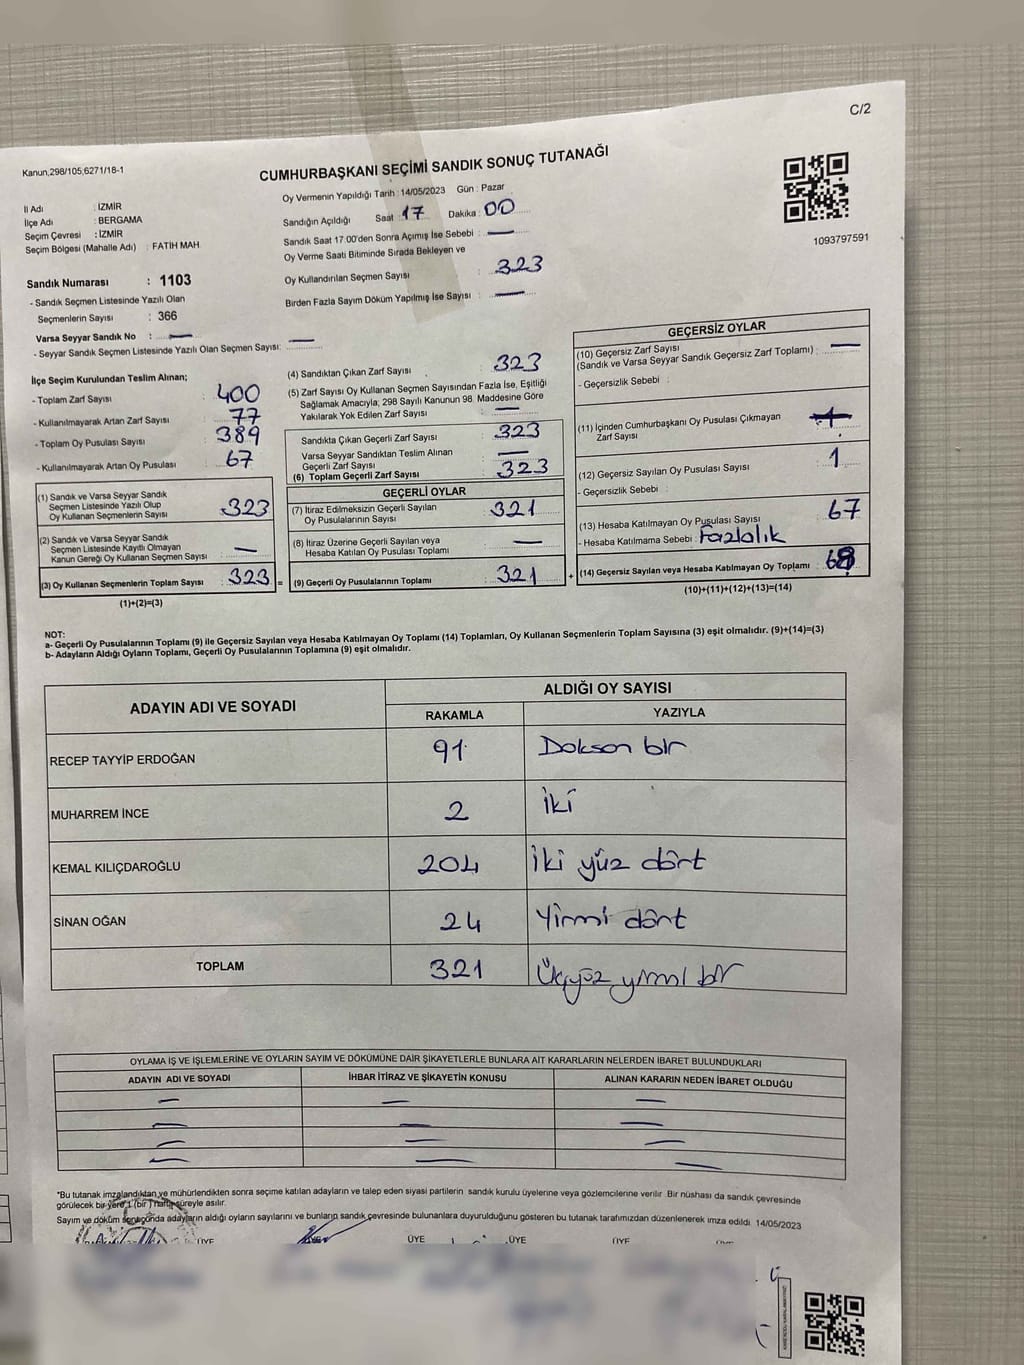 C/2
Kanun,298/105,6271/18-1
CUMHURBAŞKANI SEÇİMİ SANDIK SONUÇ TUTANAĞI
1093797591
İl Adı : İZMİR
İlçe Adı : BERGAMA
Seçim Çevresi : İZMİR
Seçim Bölgesi (Mahalle Adı) : FATİH MAH
Sandık Numarası : 1103
- Sandık Seçmen Listesinde Yazılı Olan
Seçmenlerin Sayısı : 366
Varsa Seyyar Sandık No : —
- Seyyar Sandık Seçmen Listesinde Yazılı Olan Seçmen Sayısı: —
Oy Vermenin Yapıldığı Tarih : 14/05/2023 Gün : Pazar
Sandığın Açıldığı Saat 17 Dakika : 00
Sandık Saat 17:00'den Sonra Açılmış İse Sebebi : —
Oy Verme Saati Bitiminde Sırada Bekleyen ve
Oy Kullandırılan Seçmen Sayısı : 323
Birden Fazla Sayım Döküm Yapılmış İse Sayısı : —
İlçe Seçim Kurulundan Teslim Alınan;
- Toplam Zarf Sayısı : 400
- Kullanılmayarak Artan Zarf Sayısı : 77
- Toplam Oy Pusulası Sayısı : 389
- Kullanılmayarak Artan Oy Pusulası : 67
(1) Sandık ve Varsa Seyyar Sandık
Seçmen Listesinde Yazılı Olup
Oy Kullanan Seçmenlerin Sayısı : 323
(2) Sandık ve Varsa Seyyar Sandık
Seçmen Listesinde Kayıtlı Olmayan
Kanun Gereği Oy Kullanan Seçmen Sayısı : —
(3) Oy Kullanan Seçmenlerin Toplam Sayısı : 323 =
(1)+(2)=(3)
(4) Sandıktan Çıkan Zarf Sayısı : 323
(5) Zarf Sayısı Oy Kullanan Seçmen Sayısından Fazla İse, Eşitliği
Sağlamak Amacıyla, 298 Sayılı Kanunun 98. Maddesine Göre
Yakılarak Yok Edilen Zarf Sayısı : —
Sandıkta Çıkan Geçerli Zarf Sayısı : 323
Varsa Seyyar Sandıktan Teslim Alınan
Geçerli Zarf Sayısı : —
(6) Toplam Geçerli Zarf Sayısı : 323
GEÇERLİ OYLAR
(7) İtiraz Edilmeksizin Geçerli Sayılan
Oy Pusulalarının Sayısı : 321
(8) İtiraz Üzerine Geçerli Sayılan veya
Hesaba Katılan Oy Pusulası Toplamı : —
(9) Geçerli Oy Pusulalarının Toplamı : 321 +
GEÇERSİZ OYLAR
(10) Geçersiz Zarf Sayısı
(Sandık ve Varsa Seyyar Sandık Geçersiz Zarf Toplamı) : —
- Geçersizlik Sebebi :
(11) İçinden Cumhurbaşkanı Oy Pusulası Çıkmayan
Zarf Sayısı :
(12) Geçersiz Sayılan Oy Pusulası Sayısı : 1
- Geçersizlik Sebebi :
(13) Hesaba Katılmayan Oy Pusulası Sayısı : 67
- Hesaba Katılmama Sebebi : Fazlalık
(14) Geçersiz Sayılan veya Hesaba Katılmayan Oy Toplamı :
(10)+(11)+(12)+(13)=(14)
NOT:
a- Geçerli Oy Pusulalarının Toplamı (9) ile Geçersiz Sayılan veya Hesaba Katılmayan Oy Toplamı (14) Toplamları, Oy Kullanan Seçmenlerin Toplam Sayısına (3) eşit olmalıdır. (9)+(14)=(3)
b- Adayların Aldığı Oyların Toplamı, Geçerli Oy Pusulalarının Toplamına (9) eşit olmalıdır.
ADAYIN ADI VE SOYADI ALDIĞI OY SAYISI
RAKAMLA YAZIYLA
RECEP TAYYİP ERDOĞAN 91 Doksan bir
MUHARREM İNCE 2 İki
KEMAL KILIÇDAROĞLU 204 İki yüz dört
SİNAN OĞAN 24 Yirmi dört
TOPLAM 321 Üçyüz yirmi bir
OYLAMA İŞ VE İŞLEMLERİNE VE OYLARIN SAYIM VE DÖKÜMÜNE DAİR ŞİKAYETLERLE BUNLARA AİT KARARLARIN NELERDEN İBARET BULUNDUKLARI
ADAYIN ADI VE SOYADI İHBAR İTİRAZ VE ŞİKAYETİN KONUSU ALINAN KARARIN NEDEN İBARET OLDUĞU
— — —
— — —
— — —
— — —
*Bu tutanak imzalandıktan ve mühürlendikten sonra seçime katılan adayların ve talep eden siyasi partilerin sandık kurulu üyelerine veya gözlemcilerine verilir. Bir nüshası da sandık çevresinde
görülecek bir yere 1 (bir) hafta süreyle asılır.
Sayım ve döküm sonucunda adayların aldığı oyların sayılarını ve bunların sandık çevresinde bulunanlara duyurulduğunu gösteren bu tutanak tarafımızdan düzenlenerek imza edildi. 14/05/2023
ÜYE ÜYE ÜYE ÜYE